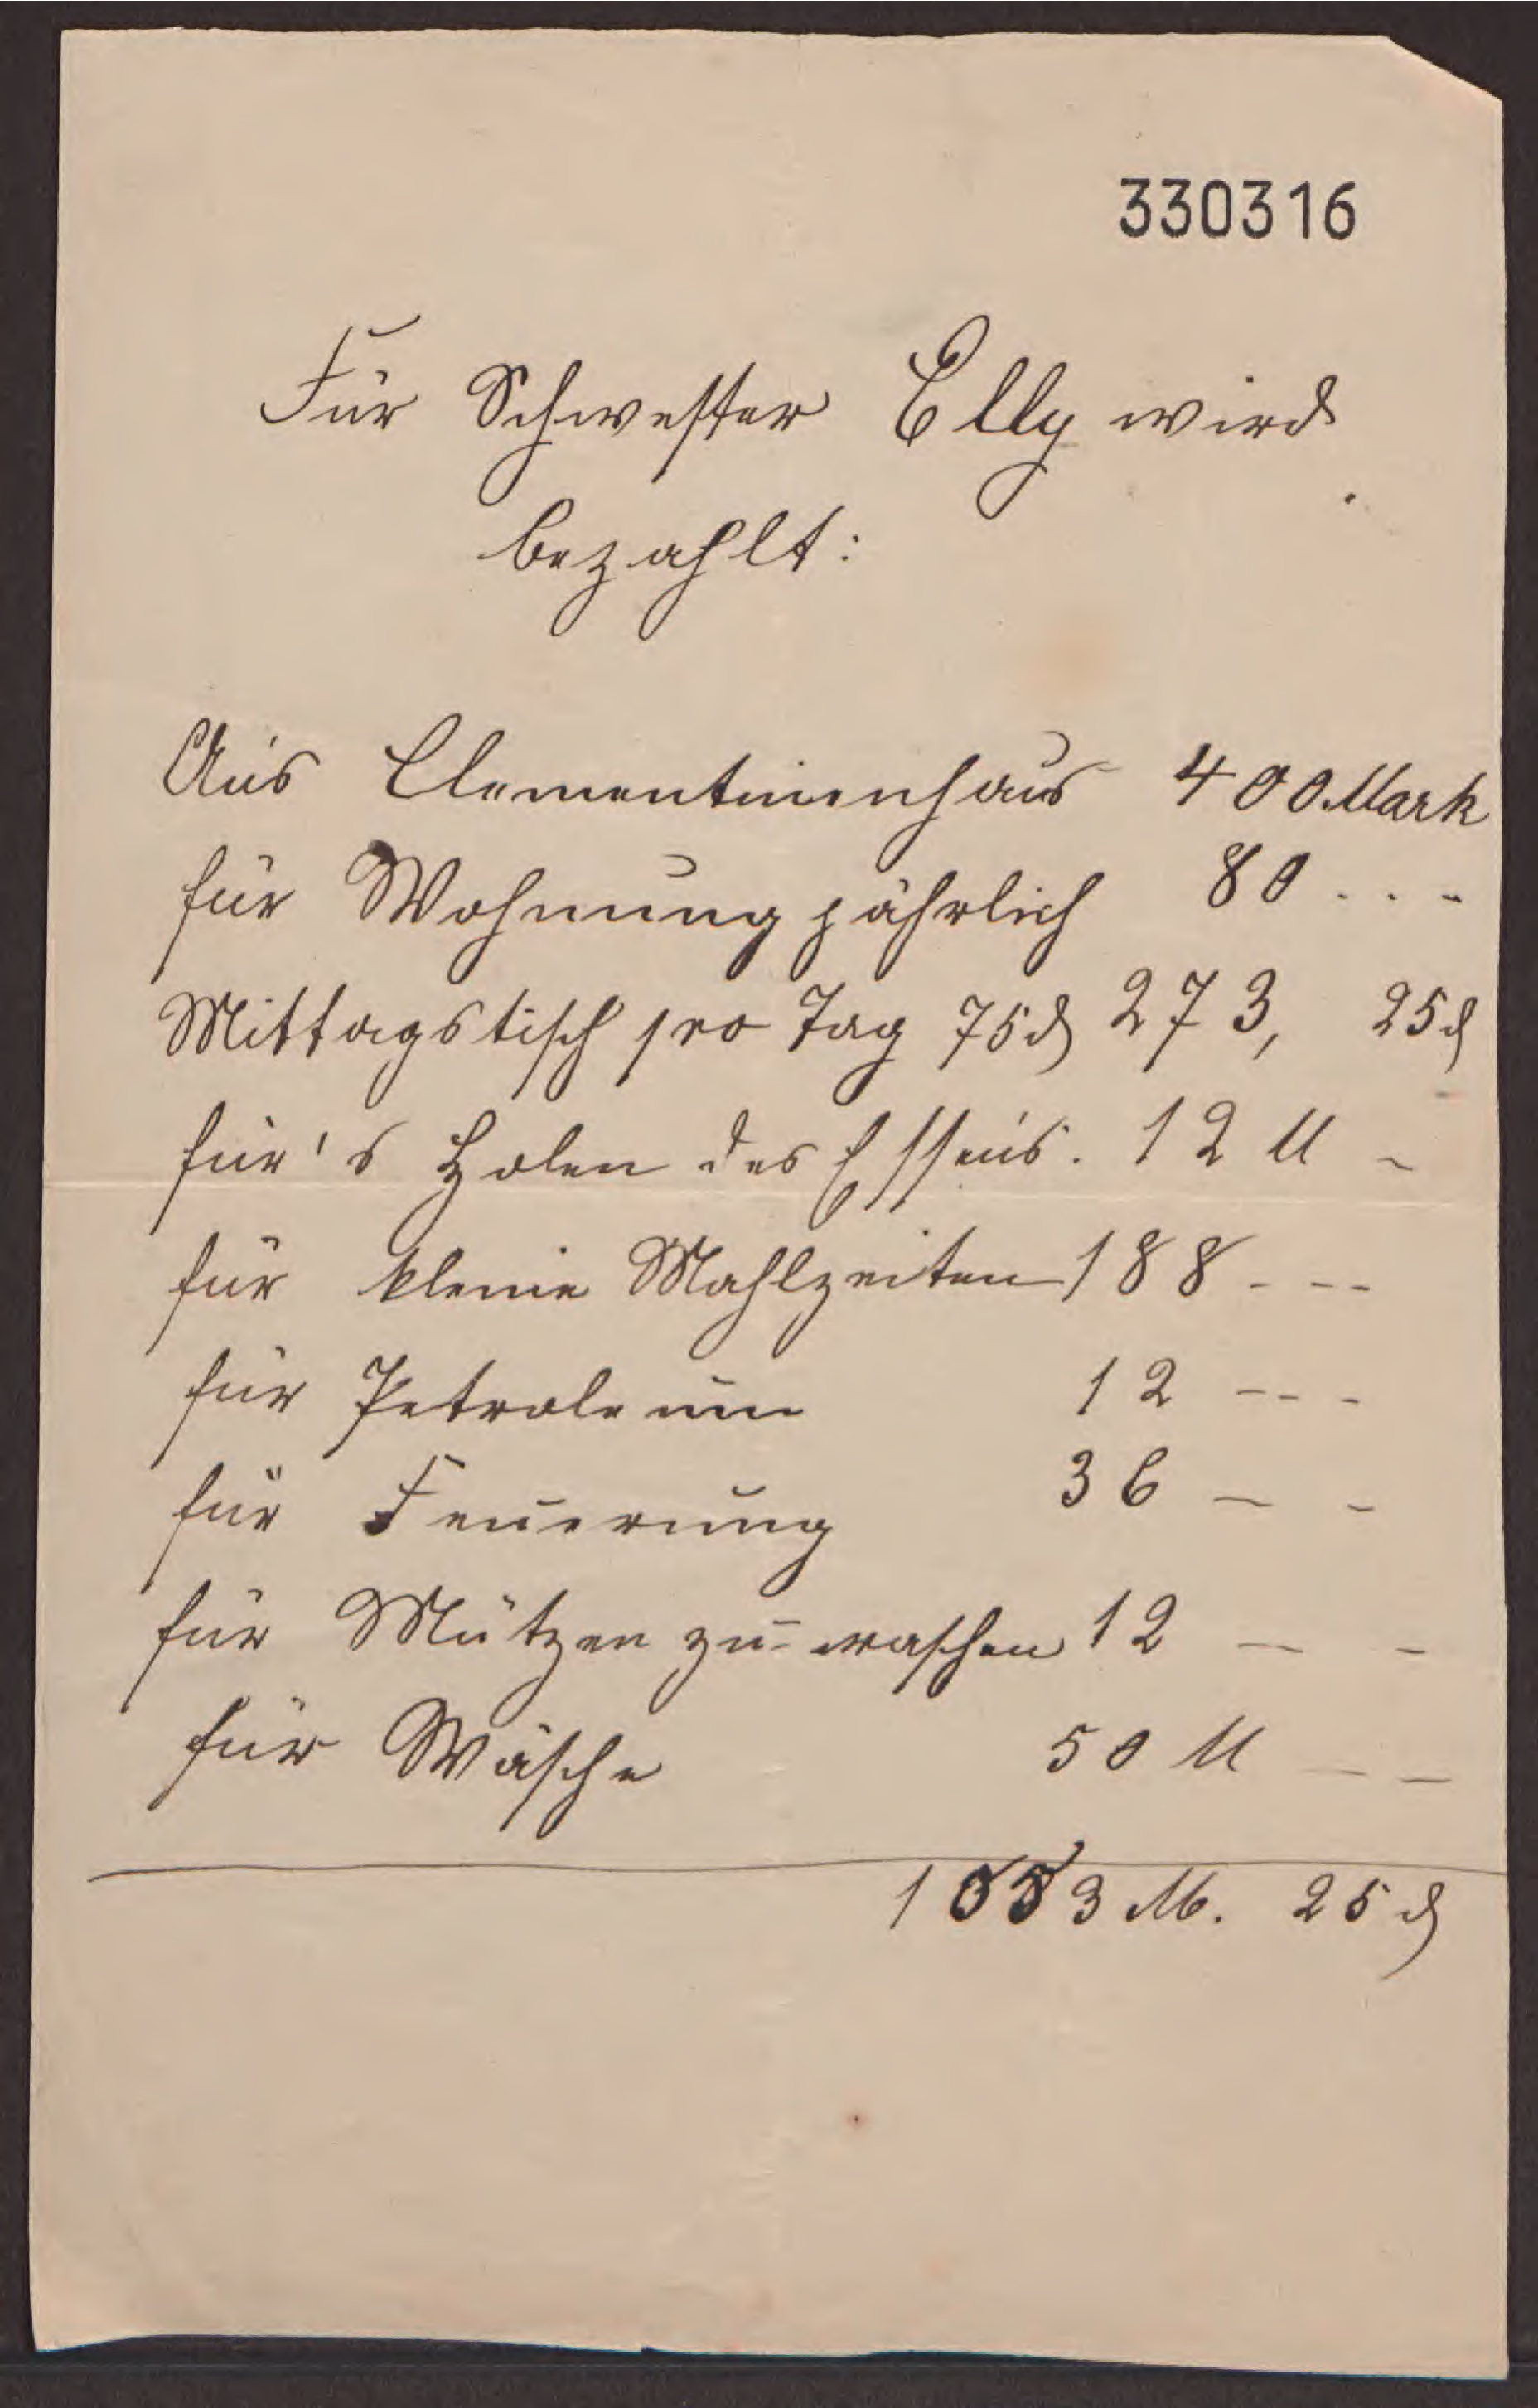 330316
Für Schwester Elly wird
bezahlt:
Ans Clementinenhaus 400 Mark
für Wohnung jährlich 80 . . -
Mittagstisch pro Tag 75 ₰ 273, 25 ₰
für's Holen des Essens. 12 M -
für kleine Mahlzeiten 188 - - -
für Petroleum 12 - - -
für Feuerung 36 - -
für Mützen zu waschen 12 - -
für Wäsche 50 M - -
1053 M. 25 ₰